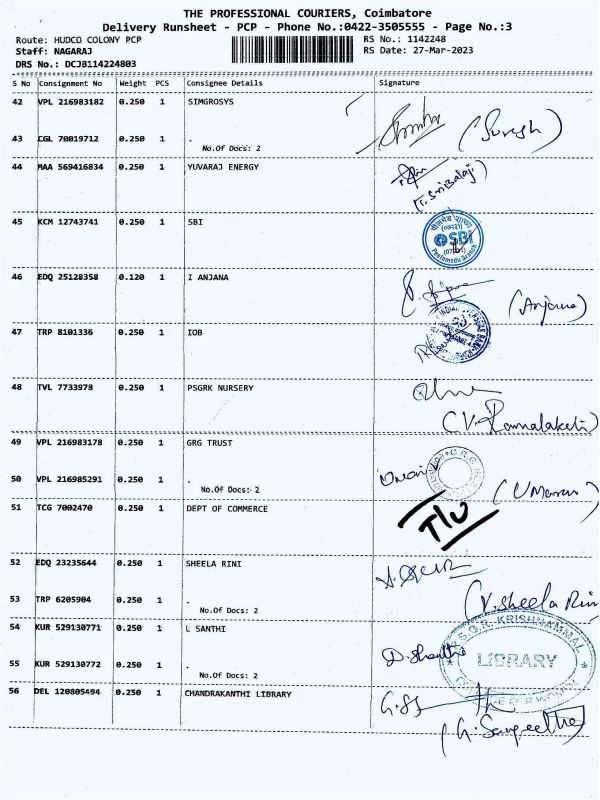 THE PROFESSIONAL COURIERS, Coimbatore
Delivery Runsheet - PCP - Phone No.:0422-3505555 - Page No.:3
Route: HUDCO COLONY PCP
RS No.: 1142248
Staff: NAGARAJ
RS Date: 27-Mar-2023
DRS No.: DCJB114224803
S No Consignment No Weight PCS Consignee Details Signature
42 VPL 216983182 0.250 1 SIMGROSYS
(Suresh)
43 CGL 70019712 0.250 1 .
No.Of Docs: 2
44 MAA 569416834 0.250 1 YUVARAJ ENERGY
(T. SriBalaji)
45 KCM 12743741 0.250 1 SBI
SBI
Peelamedu Branch
46 EDQ 25128358 0.120 1 I ANJANA
(Anjana)
47 TRP 8101336 0.250 1 IOB
48 TVL 7733978 0.250 1 PSGRK NURSERY
49 VPL 216983178 0.250 1 GRG TRUST
50 VPL 216985291 0.250 1 .
No.Of Docs: 2
51 TCG 7002470 0.250 1 DEPT OF COMMERCE
52 EDQ 23235644 0.250 1 SHEELA RINI
53 TRP 6205904 0.250 1 .
(V. Sheela Rini
No.Of Docs: 2
54 KUR 529130771 0.250 1 L SANTHI
KRISHNAMMAL
LIBRARY
55 KUR 529130772 0.250 1 .
No.Of Docs: 2
56 DEL 120805494 0.250 1 CHANDRAKANTHI LIBRARY
(G. Sangeetha)